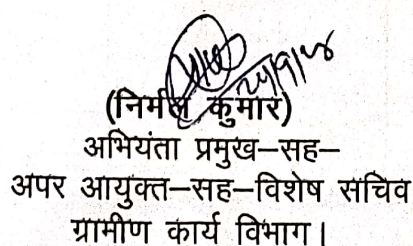 (निर्मल कुमार)
अभियंता प्रमुख–सह–
अपर आयुक्त–सह–विशेष सचिव
ग्रामीण कार्य विभाग।